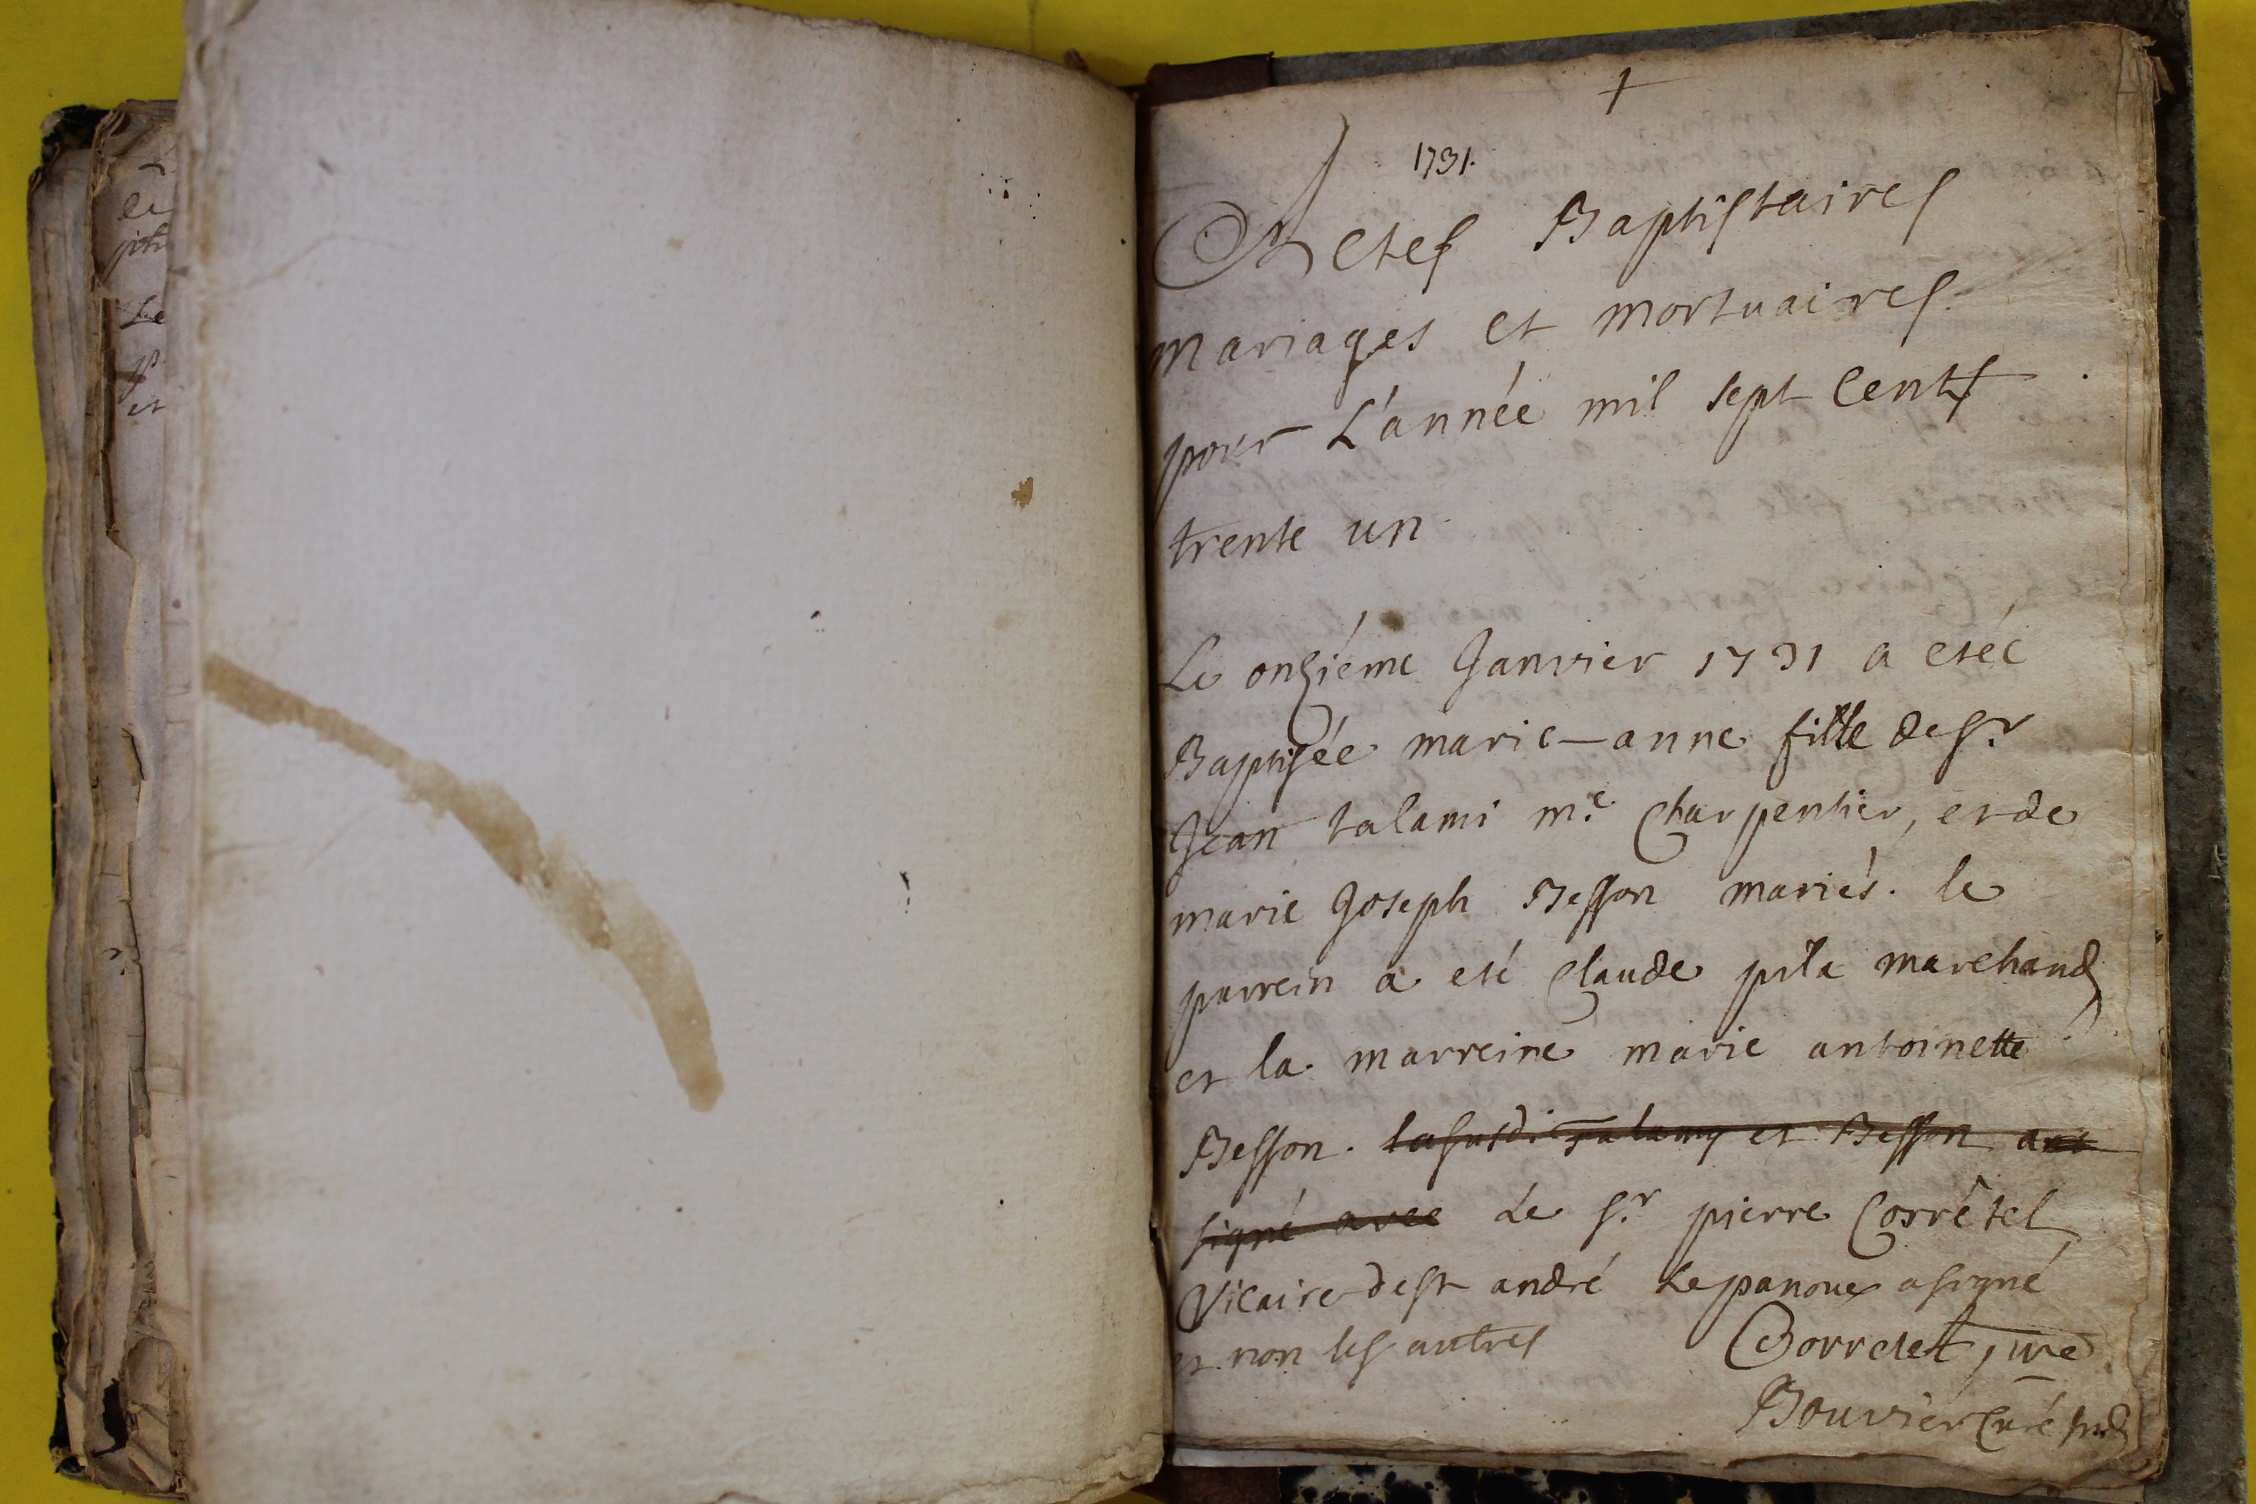 1731.
Actes Baptistaires
mariages et mortuaires.
pour L'année mil sept Cent
trente un
Le onziéme Janvier 1731 a etée
Baptisée marie-anne fille de sr
Jean talami me. Charpentier, et de
marie Joseph Besson mariés. le
parrein a eté Claude pila marchand
et la marreine marie antoinette
Besson. talamy et Besson ont
signé avec Le sr pierre Corrétel
Vicaire de st andré Le panoux a signé
et non les autres Corretet
Bouvier Curé